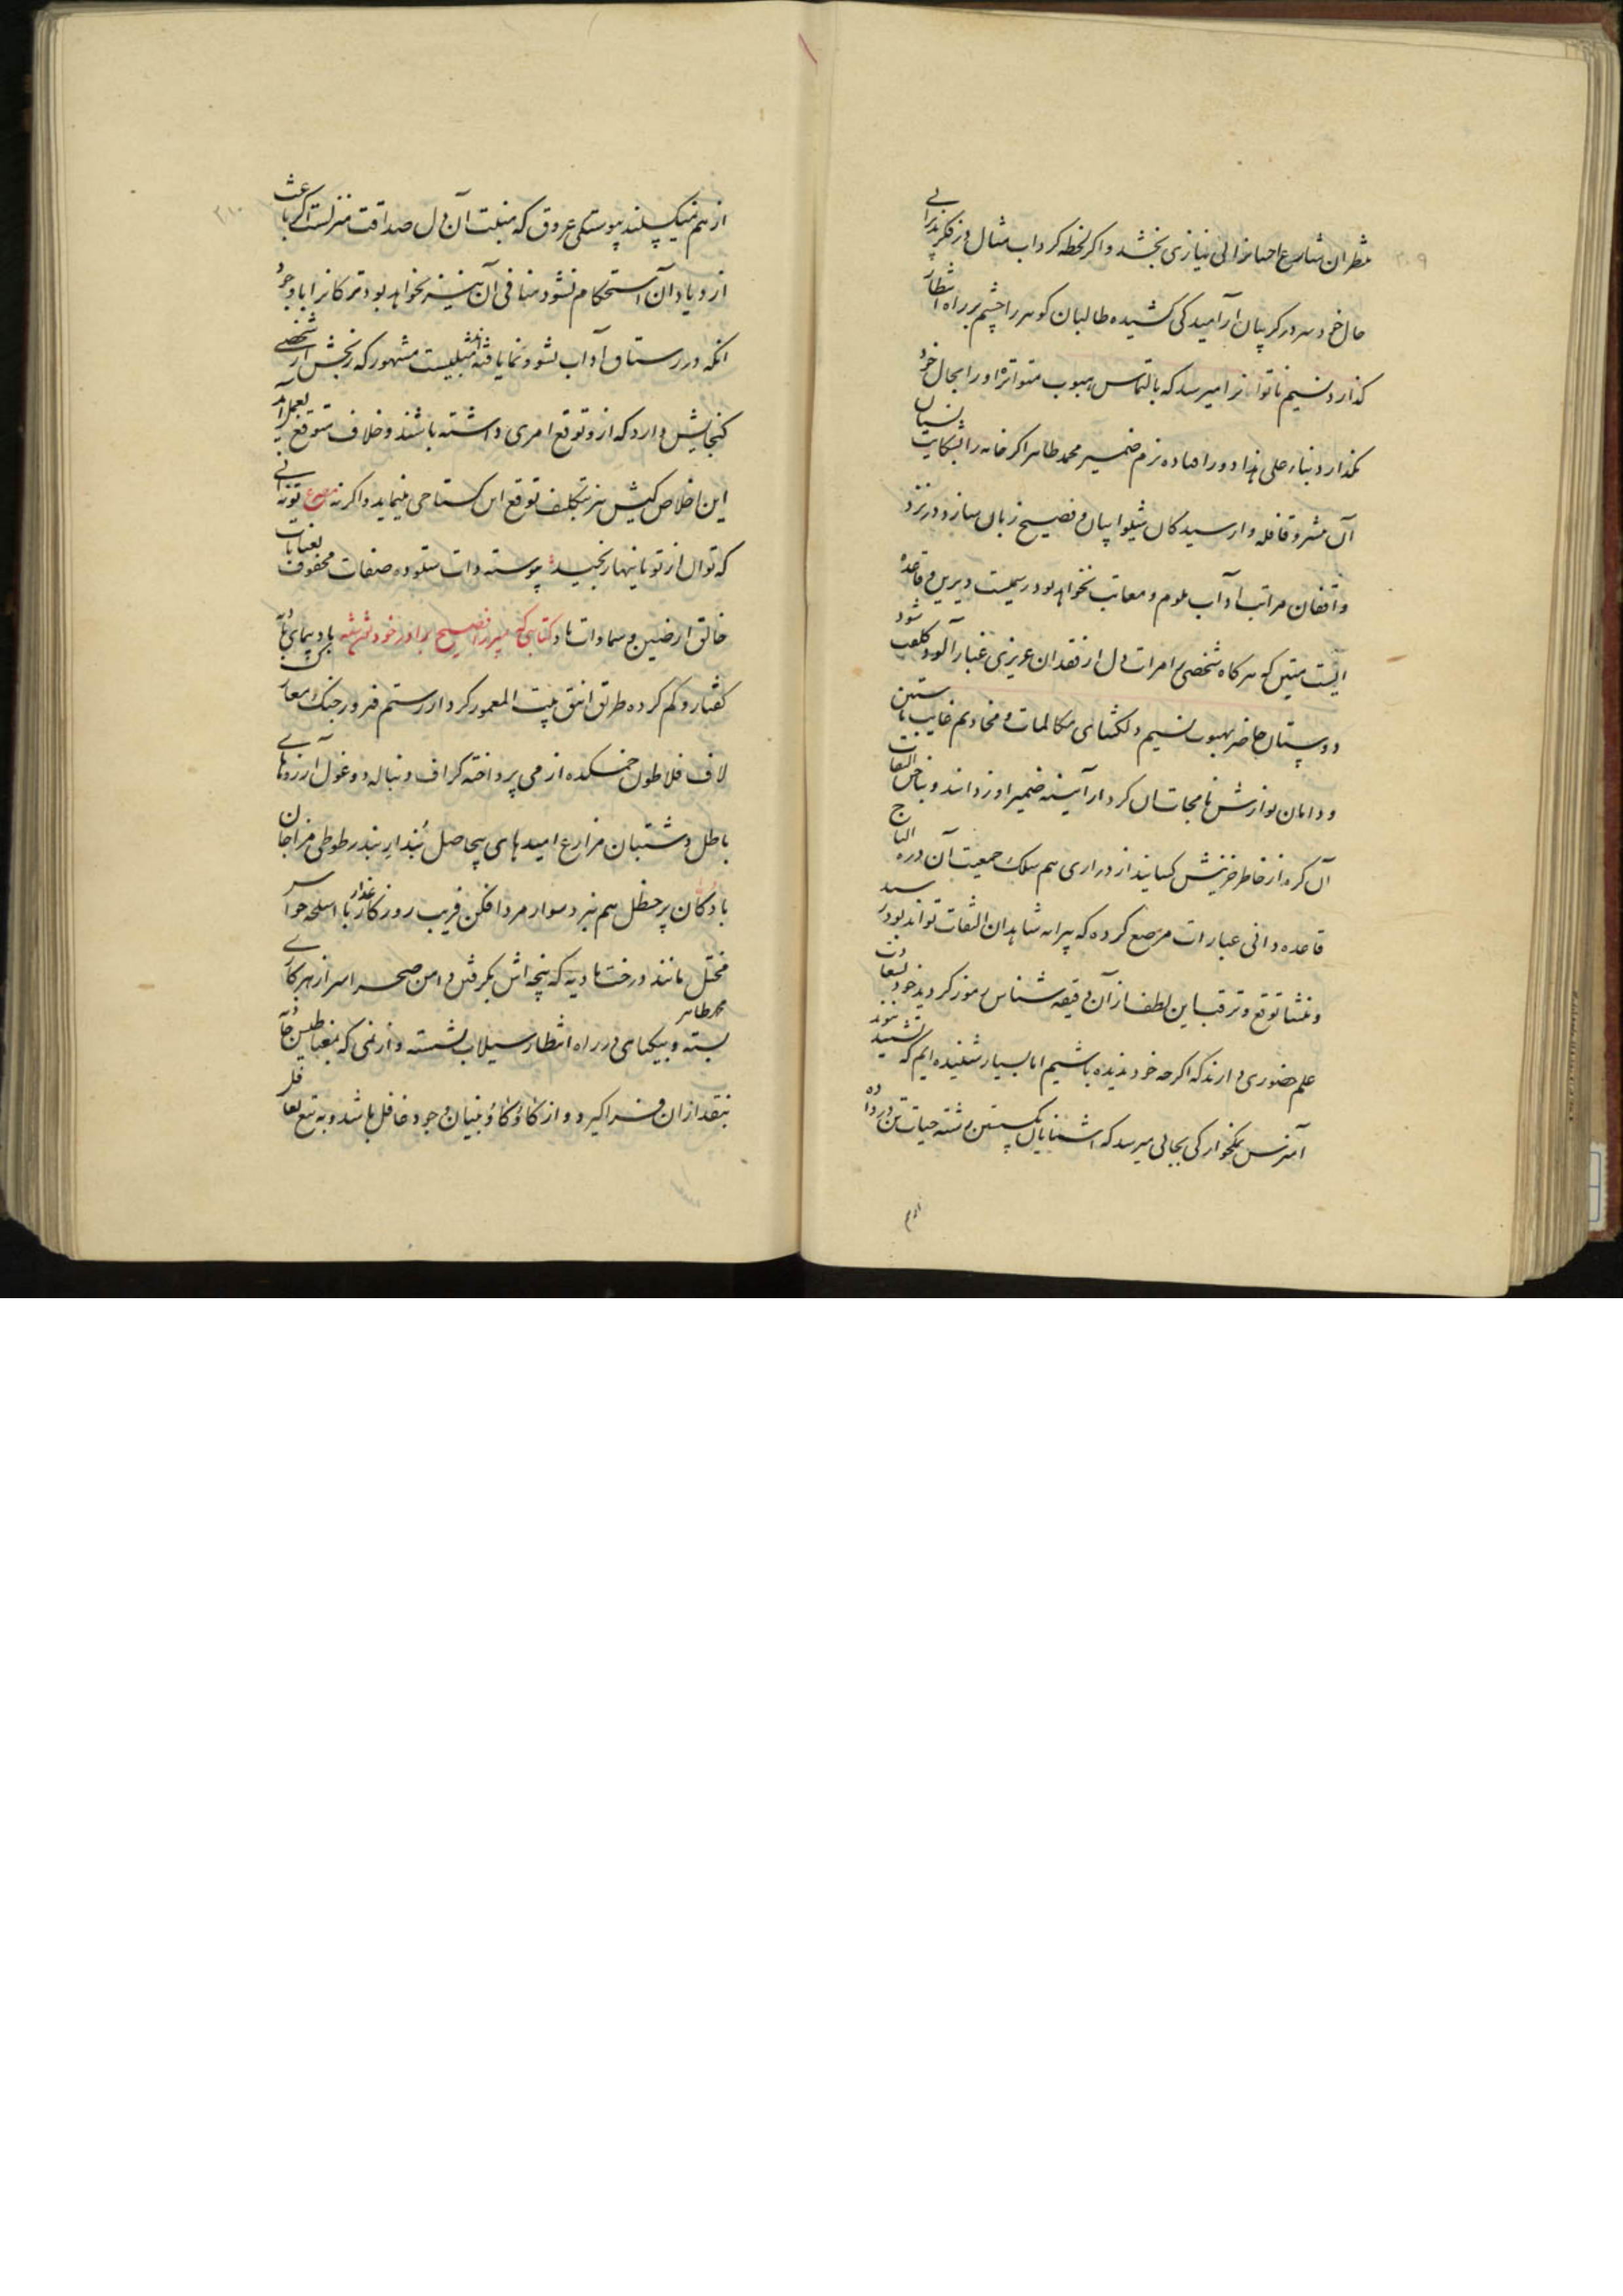 ۳۰۹
منظران شارع احتیاز الی نیازی بخشد و اکر لحظه کرداب مثال در فکر پذیرایی
حال خود سر در کریبان آرامیدکی کشیده طالبان کوهر را چشم بر راه انتظار
کذارد نسیم ناتوانرا میرسد که بالتماس هبوب متواتره او را بحال خود
نکذارد بناء علی هذا دور افتاده بزم ضمیر محمد طاهر اکر خامه را بشکایت نسیان
آن سر و قافله وارسیدکان شیوا بیان فصیح زبان سازد در نزد
واقفان مراتب آداب ملوم و معاتب نخواهد بود رسمیست دیرین و قاعدۀ
ایست متین که هرکاه شخصی را مرات دل از فقدان عزیزی غبار آلود کلفت شود
دوستان حاضر بهبوب نسیم دلکشای مکالمات و مخادیم غایب باستین
و دامان نوازش نامجات آن کرد از آینه ضمیر او زدانند و بناخن التفات
آن کره از خاطر حزینش کشایند از دراری هم سلک جمعیت آن درة التاج
قاعده دانی عبارات مرصع کرده که پیرایه شاهدان التفات تواند بود رسید
و منشا توقع و ترقب این لطف از آن دقیقه شناس رموز کردید خود بسعادت
علم حضوری دارند که اکرچه خود ندیده باشیم اما بسیار شنیده ایم که تشبید نبود
آمیزش نمکخوارکی بجائی میرسد که آشنایان بکسستن رشته حیات تن در داده
از هم
از هم نمیکسلند پیوستکی عروق که منبت آن دل صداقت منزلست اکر باعث
ازدیاد آن استحکام نشود منافی آن نیز نخواهد بود ترکانرا با وجود
انکه در رستاق آداب نشو و نما یافته اند مثلیست مشهور که رنجش از شخصی
کنجایش دارد که ازو توقع امری داشته باشند و خلاف متوقع بعمل آید
این اخلاص کیش نیز بتکلف توقع این کستاخی مینماید و اکر نه مصرع تو نه آنی
که توان از تو باینها رنجید پیوسته ذات ستوده صفات محفوف بعنایات
خالق ارضین و سماوات باد کتابی که میرزا فصیح برادر خود نوشته باد پیمای بادیۀ
کفتار و کم کرده طریق انیق بیت المعمور کردار رستم فیروز جنک معارک
لاف فلاطون خمکده از می پرداخته کزاف دنباله دو غول آرزوهای
باطل دشتبان مزارع امیدهای بیحاصل بندار بندر طوطی مزاجان
با دکان پر حنظل هم نبرد سوار مرد افکن فریب روزکار غدار با اسلحه حواس
مختل مانند درخت بادیه که پنجه اش بکرفتن دامن صحرا سر از هر کاری
بسته و بیکپای در راه انتظار سیلاب نشسته و از نمی که بمغناطیس جاذبۀ محمد طاهر
بنقد از ان فرا کیرد و از کاو کاو بنیان وجود غافل باشد و به تیغ تغافل
۳۱۰